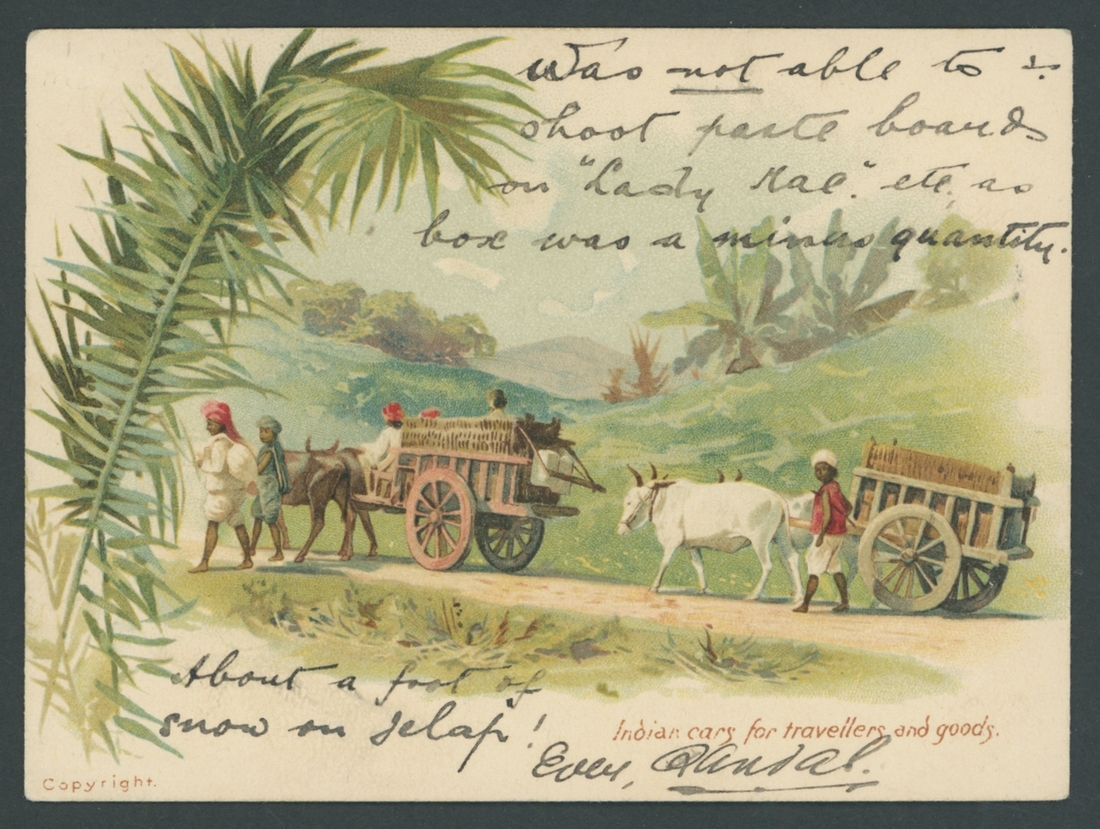 Was not able to
shoot paste boards
on "Lady Mac." etc. as
box was a minus quantity.
About a foot of
snow on Jelap!
Indian cars for travellers and goods.
Ever, Randal.
Copyright.